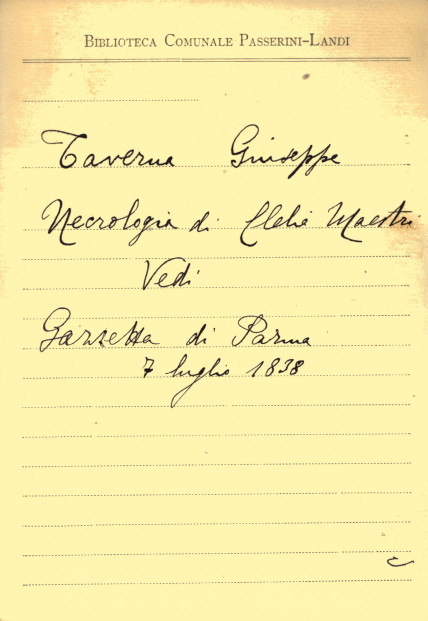 BIBLIOTECA COMUNALE PASSERINI-LANDI
Taverna Giuseppe
Necrologia di Clelia Maestri
Vedi
Gazzetta di Parma
7 luglio 1838